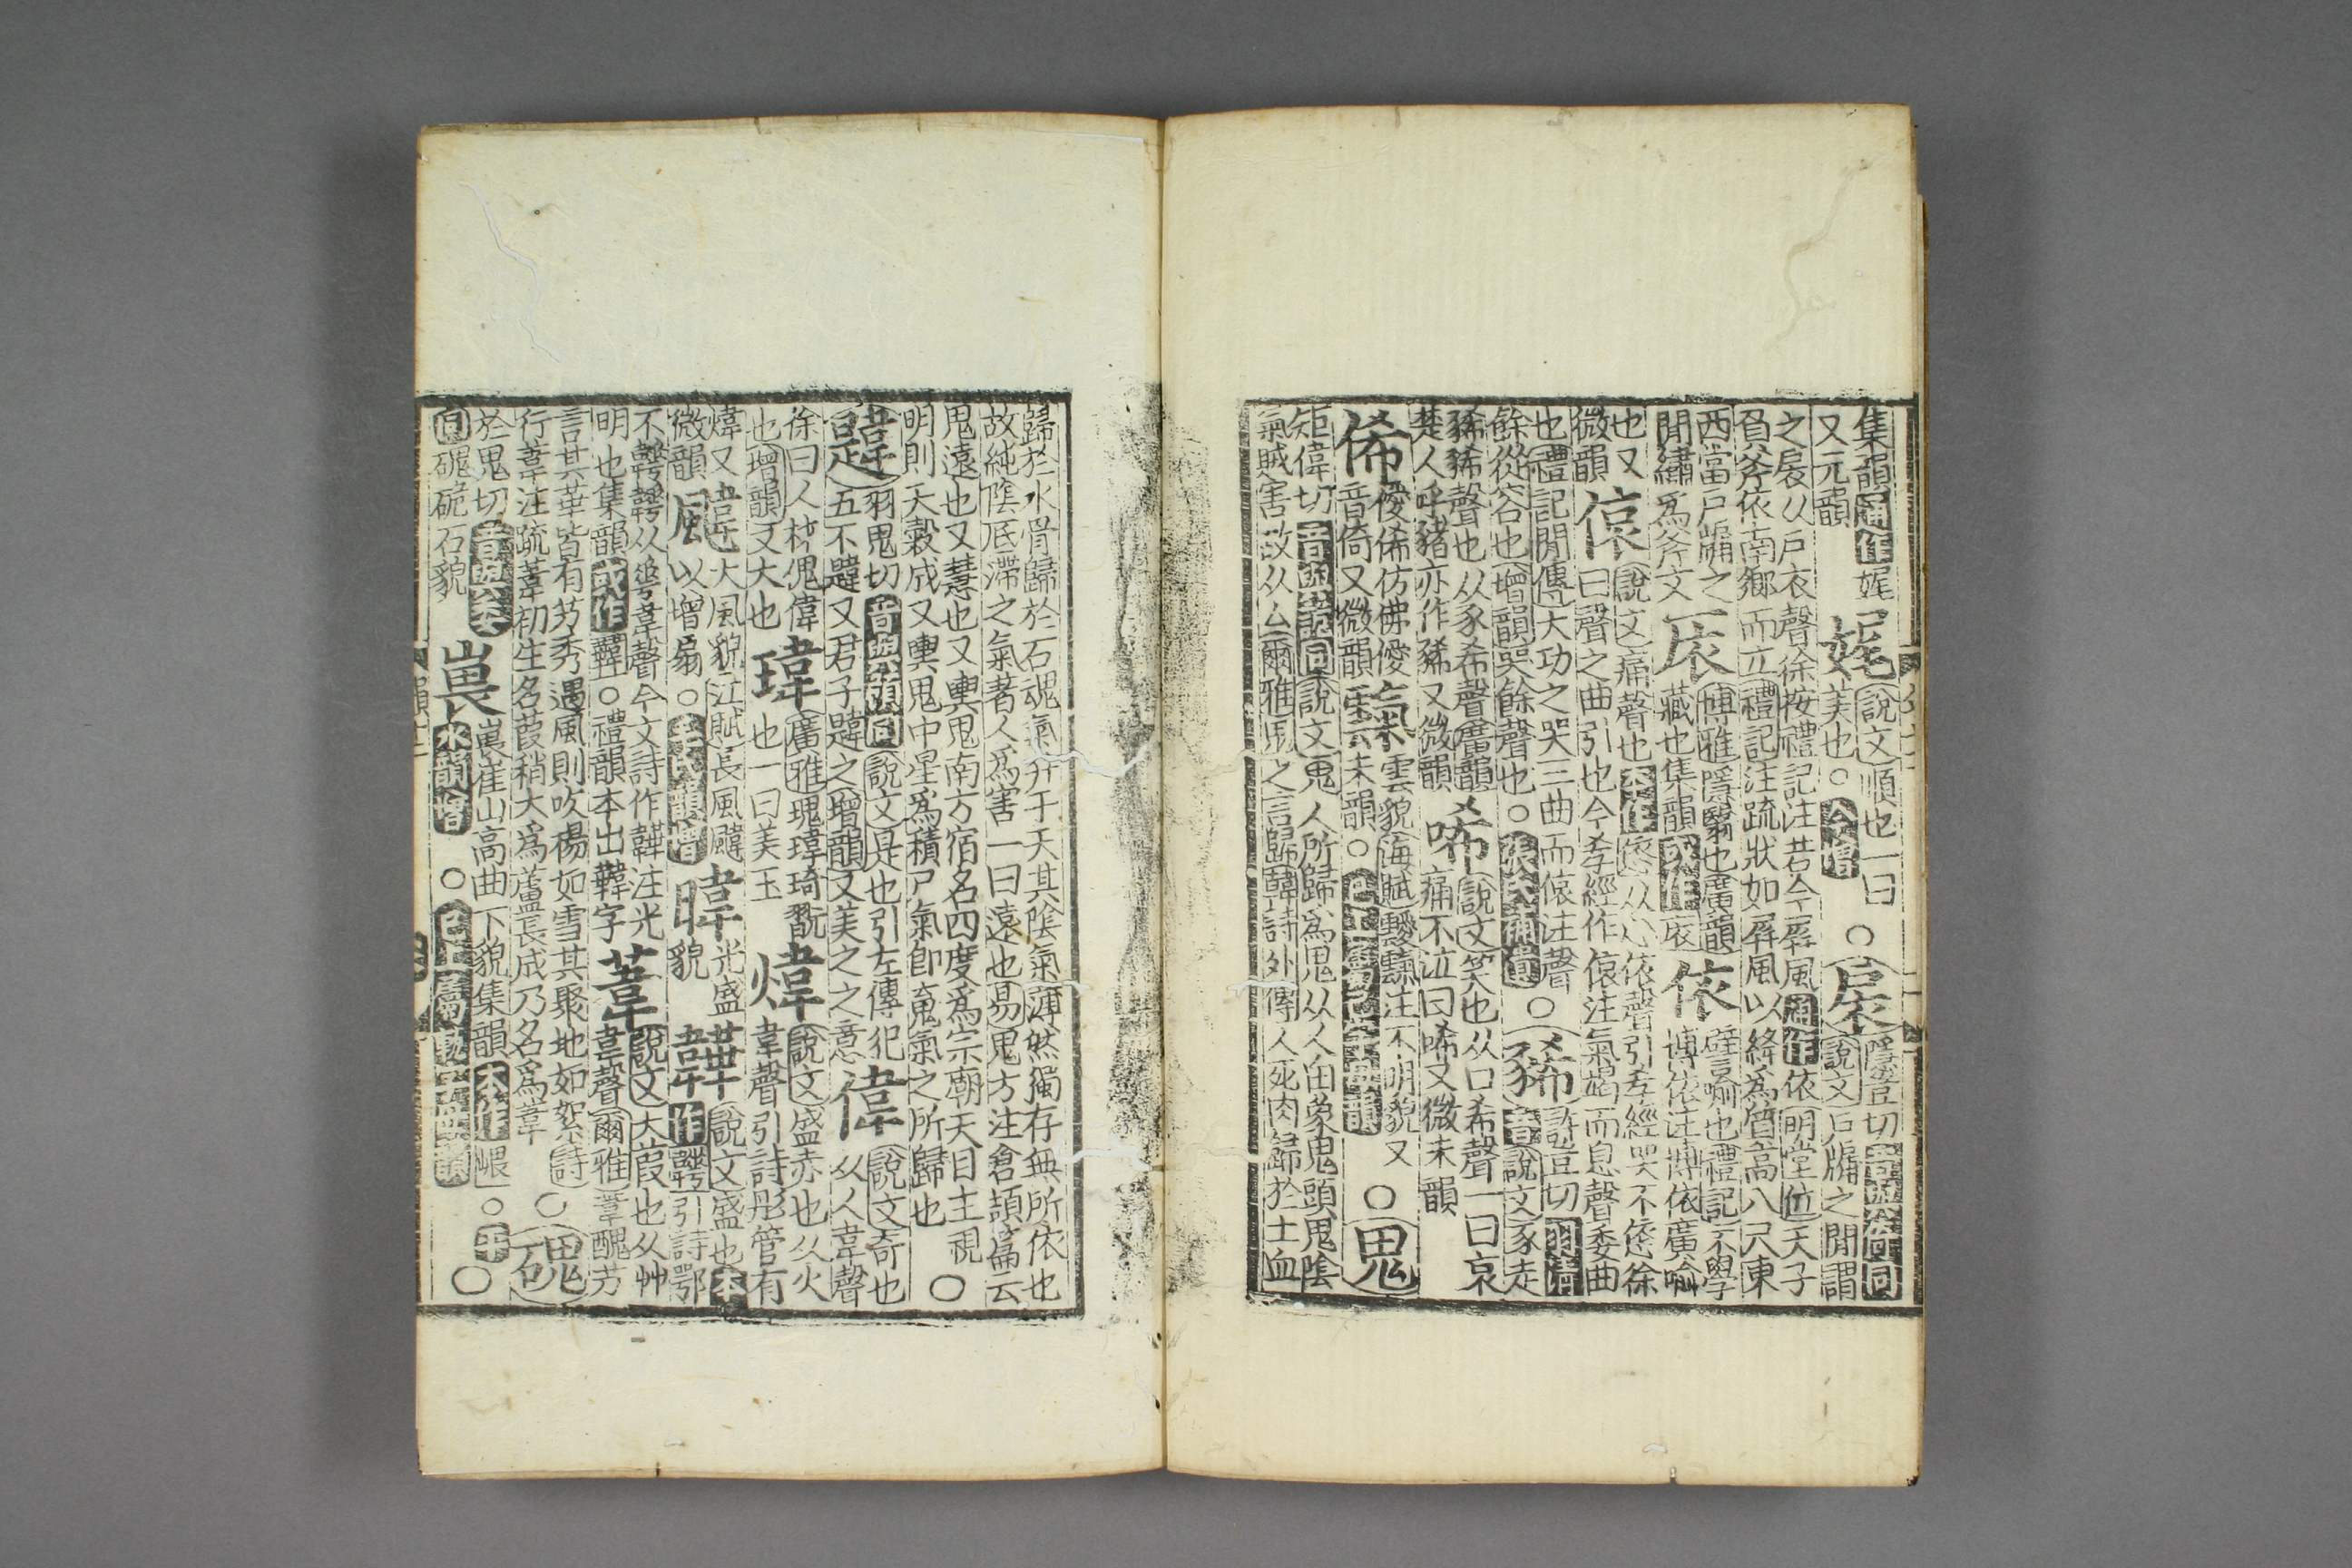 集韻通作娓
又元韻
娓
說文順也一曰
美也○今增
○扆
隱豈切音與倚同
說文戶牖之閒謂
之扆从戶衣聲徐按禮記注若今屏風通作依明堂位天子
負斧依南鄉而立禮記注疏狀如屏風以絳爲質高八尺東
西當戶牖之
閒繡爲斧文
㕈
博雅隱翳也廣韻
藏也集韻又作扆
依
譬喻也禮記不學
博依注博依廣喻
也又
微韻
偯
說文痛聲也本作㥋从心依聲引孝經哭不㥋徐
曰聲之曲引也今孝經作偯注氣竭而息聲委曲
也禮記閒傳大功之哭三曲而偯注聲
餘從容也增韻哭餘聲也○張氏補遺
○豨
許豈切羽濁
音說文豕走
豨豨聲也从豕希聲廣韻
楚人呼豬亦作狶又微韻
唏
說文笑也从口希聲一曰哀
痛不泣曰唏又微未韻
俙
僾俙仿佛僾
音倚又微韻
霼
雲貌海賦靉霼注不明貌又
未韻○
○鬼
矩偉切音與詭同說文鬼人所歸爲鬼从人由象鬼頭鬼陰
氣賊害故从厶爾雅鬼之言歸韓詩外傳人死肉歸於土血
歸於水骨歸於石魂氣升于天其陰氣薄然獨存無所依也
故純陰底滯之氣著人爲害一曰遠也易鬼方注倉頡篇云
鬼遠也又慧也又輿鬼南方宿名四度爲宗廟天目主視
明則天穀成又輿鬼中星爲積尸氣卽䰟氣之所歸也
○韙
羽鬼切音與洧同說文是也引左傳犯
五不韙又君子韙之增韻又美之之意
偉
說文奇也
从人韋聲
徐曰人材傀偉
也增韻又大也
瑋
廣雅瑰瑋琦翫
也一曰美玉
煒
說文盛赤也从火
韋聲引詩彤管有
煒又
微韻
颹
大風貌江賦長風颹
以增扇○毛氏韻增
暐
光盛
貌
韡
說文盛也本
作𩏂引詩鄂
不𩏂𩏂从𠌶韋聲今文詩作韡注光
明也集韻或作韡○禮韻本出韡字
葦
說文大葭也从艸
韋聲爾雅葦醜芀
言其華皆有芀秀遇風則吹揚如雪其聚地如絮詩
行葦注疏葦初生名葭稍大爲蘆長成乃名爲葦
○磈
於鬼切音與委
同磈硊石貌
嵔
嵔崔山高曲下貌集韻本作㟪○平
水韻增○